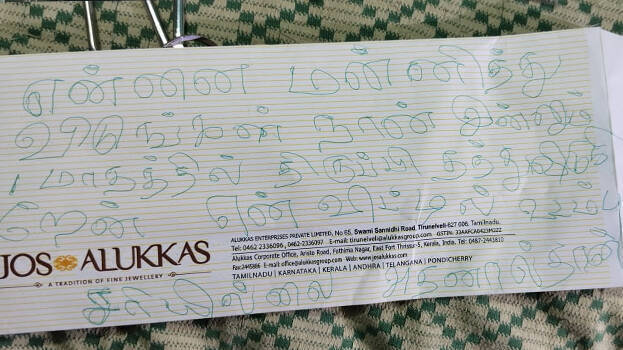 என்னை மன்னித்து
விடுங்கள் நான் இன்னும்
1 மாதத்தில் திருப்பி தந்துவிடு
கிறேன் என் வீட்டில்
JOS ALUKKAS
A TRADITION OF FINE JEWELLERY
ALUKKAS ENTERPRISES PRIVATE LIMITED, No 65, Swami Sannidhi Road, Tirunelveli-627 006, Tamilnadu.
Tel: 0462 2336096, 0462-2336097 E-mail: tirunelveli@alukkasgroup.com GSTIN: 33AAFCA0423M2Z2
Alukkas Corporate Office, Aristo Road, Fathima Nagar, East Fort Thrissur-5, Kerala, India. Tel: 0487-2443810
Fax:2445586 E-mail: office@alukkasgroup.com Web: www.josalukkas.com
TAMILNADU | KARNATAKA | KERALA | ANDHRA | TELANGANA | PONDICHERRY
சரியில்லை